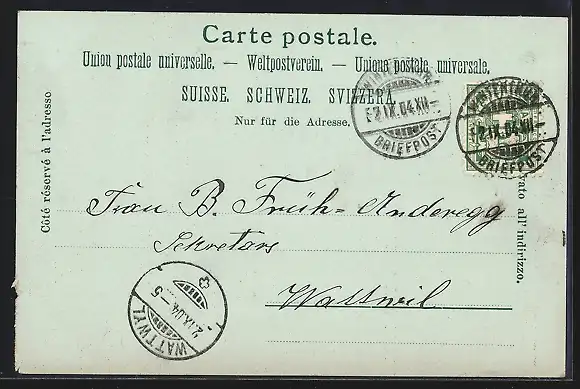 Carte postale.
Union postale universelle. — Weltpostverein. — Unione postale universale.
SUISSE. SCHWEIZ. SVIZZERA.
Nur für die Adresse.
Côté réservé à l'adresse
WINTERTHUR
2.IX.04.XII
BRIEFPOST
WINTERTHUR
2.IX.04.XII
BRIEFPOST
all' indirizzo.
Frau B. Früh-Anderegg
Sekretärs
Wattwil
2.IX.04.–5
WATTWYL